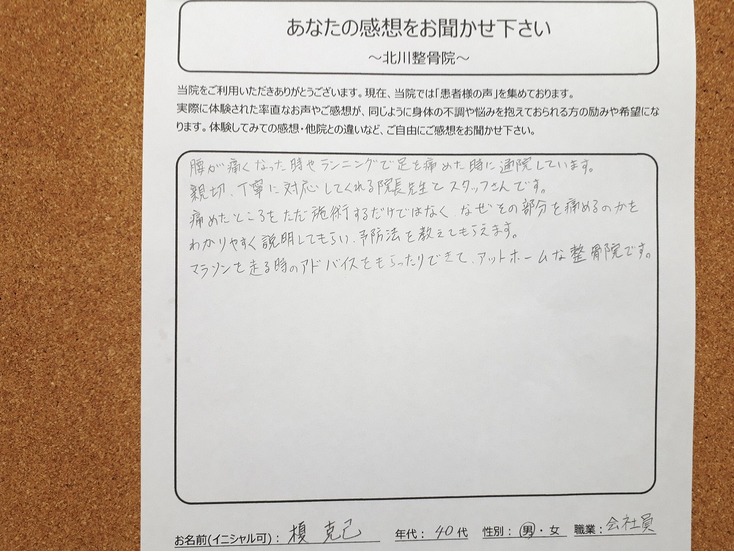 あなたの感想をお聞かせ下さい
～北川整骨院～
当院をご利用いただきありがとうございます。現在、当院では「患者様の声」を集めております。
実際に体験された率直なお声やご感想が、同じように身体の不調や悩みを抱えておられる方の励みや希望にな
ります。体験してみての感想・他院との違いなど、ご自由にご感想をお聞かせ下さい。
腰が痛くなった時やランニングで足を痛めた時に通院しています。
親切、丁寧に対応してくれる院長先生とスタッフさんです。
痛めたところをただ施術するだけではなく、なぜその部分を痛めるのかを
わかりやすく説明してもらい、予防法を教えてもらえます。
マラソンを走る時のアドバイスをもらったりできて、アットホームな整骨院です。
お名前(イニシャル可)：榎 克己 年代：40代 性別：男・女 職業：会社員